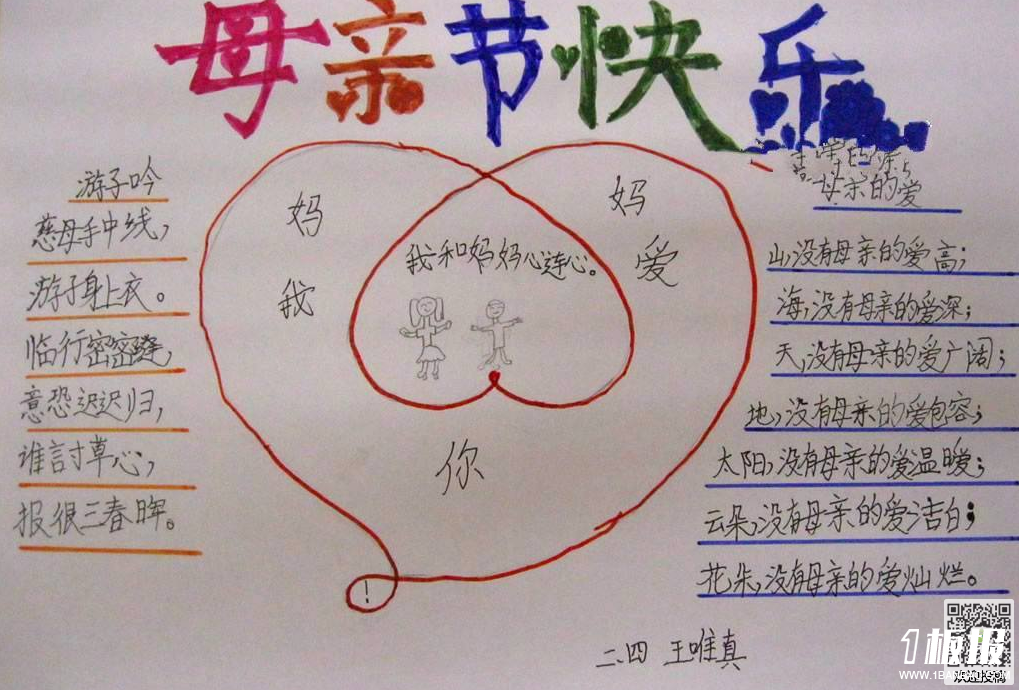 母亲节快乐
游子吟
慈母手中线，
游子身上衣。
临行密密缝，
意恐迟迟归，
谁討草心，
报很三春晖。
妈 妈
我 爱
我和妈妈心连心。
你
！
母亲的爱
山，没有母亲的爱高；
海，没有母亲的爱深；
天，没有母亲的爱广阔；
地，没有母亲的爱包容；
太阳，没有母亲的爱温暖；
云朵，没有母亲的爱洁白；
花朵，没有母亲的爱灿烂。
二.四 王唯真
1板报
WWW.1BANBAO.COM
欢迎投稿